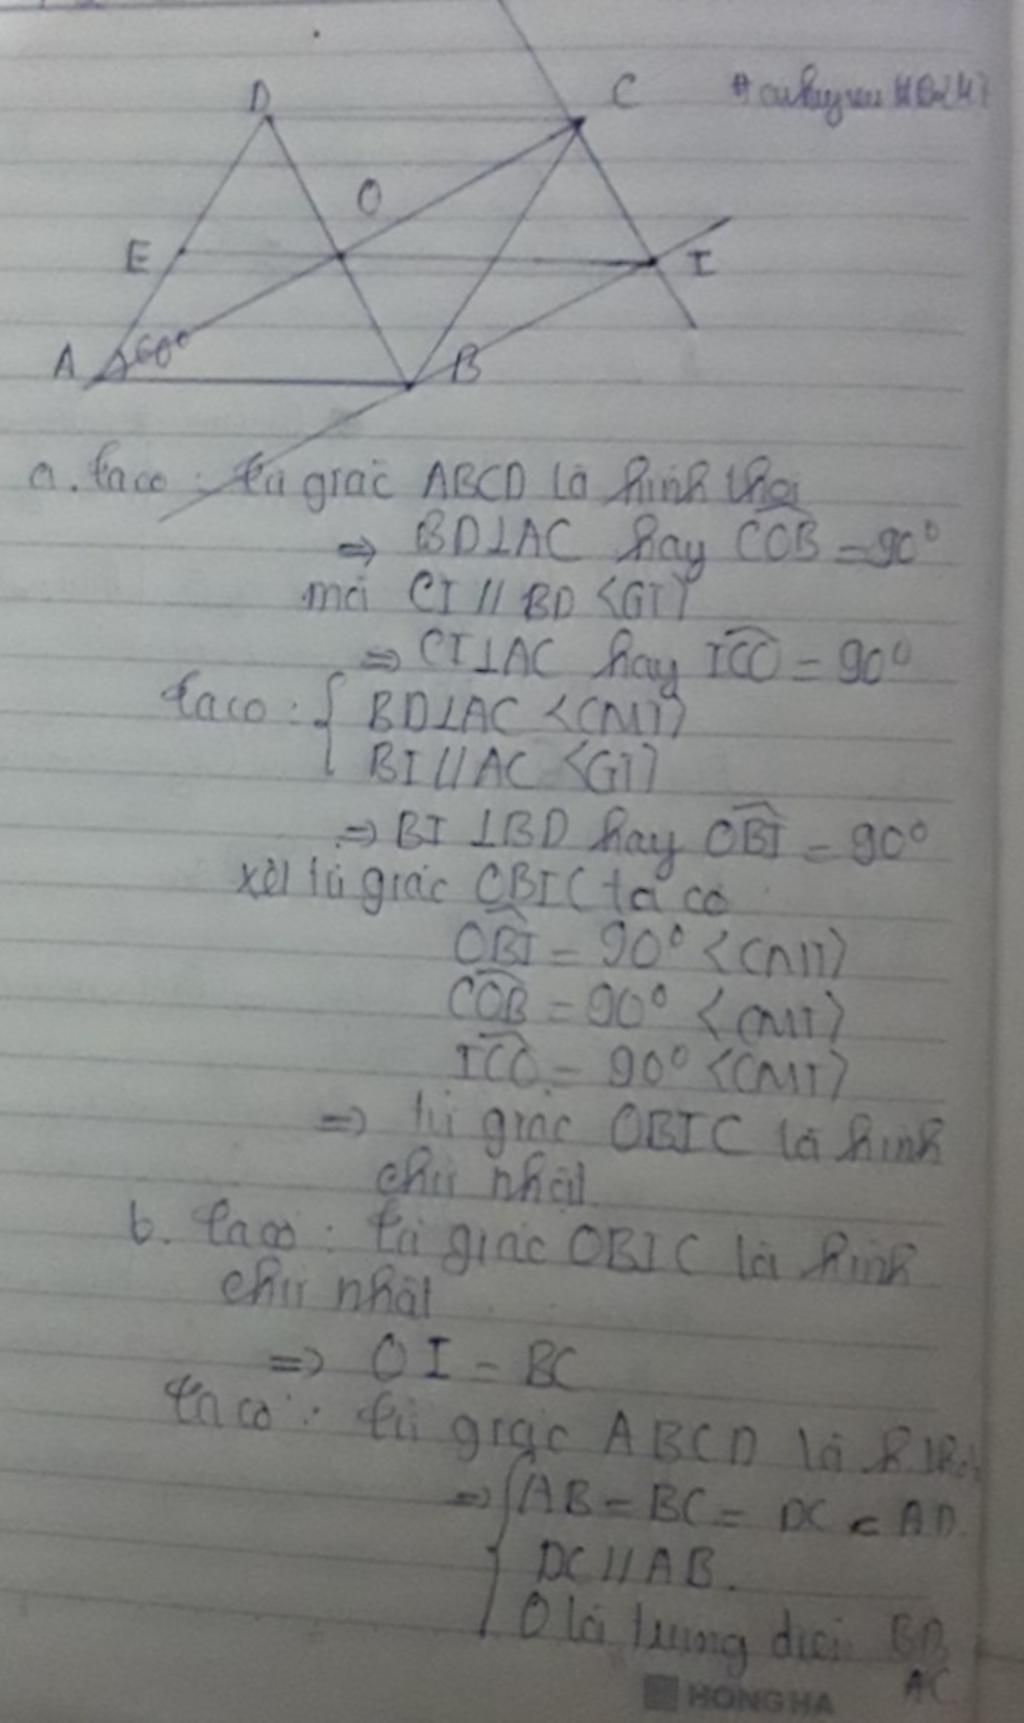 D
C
O
E
I
A
60°
B
a. ta có : tứ giác ABCD là hình thoi
=> BD⊥AC hay COB = 90°
mà CI // BD <GT>
=> CI⊥AC hay ICO = 90°
ta có : { BD⊥AC <CMT>
BI // AC <GT>
=> BI ⊥BD hay OBI = 90°
xét tứ giác OBIC ta có
OBI = 90° <CMT>
COB = 90° <CMT>
ICO = 90° <CMT>
=> tứ giác OBIC là hình
chữ nhật
b. ta có : tứ giác OBIC là hình
chữ nhật
=> OI = BC
ta có : tứ giác ABCD là h.thoi
=> { AB = BC = DC = AD
DC // AB.
O là trung điểm BD
AC
HONG HA